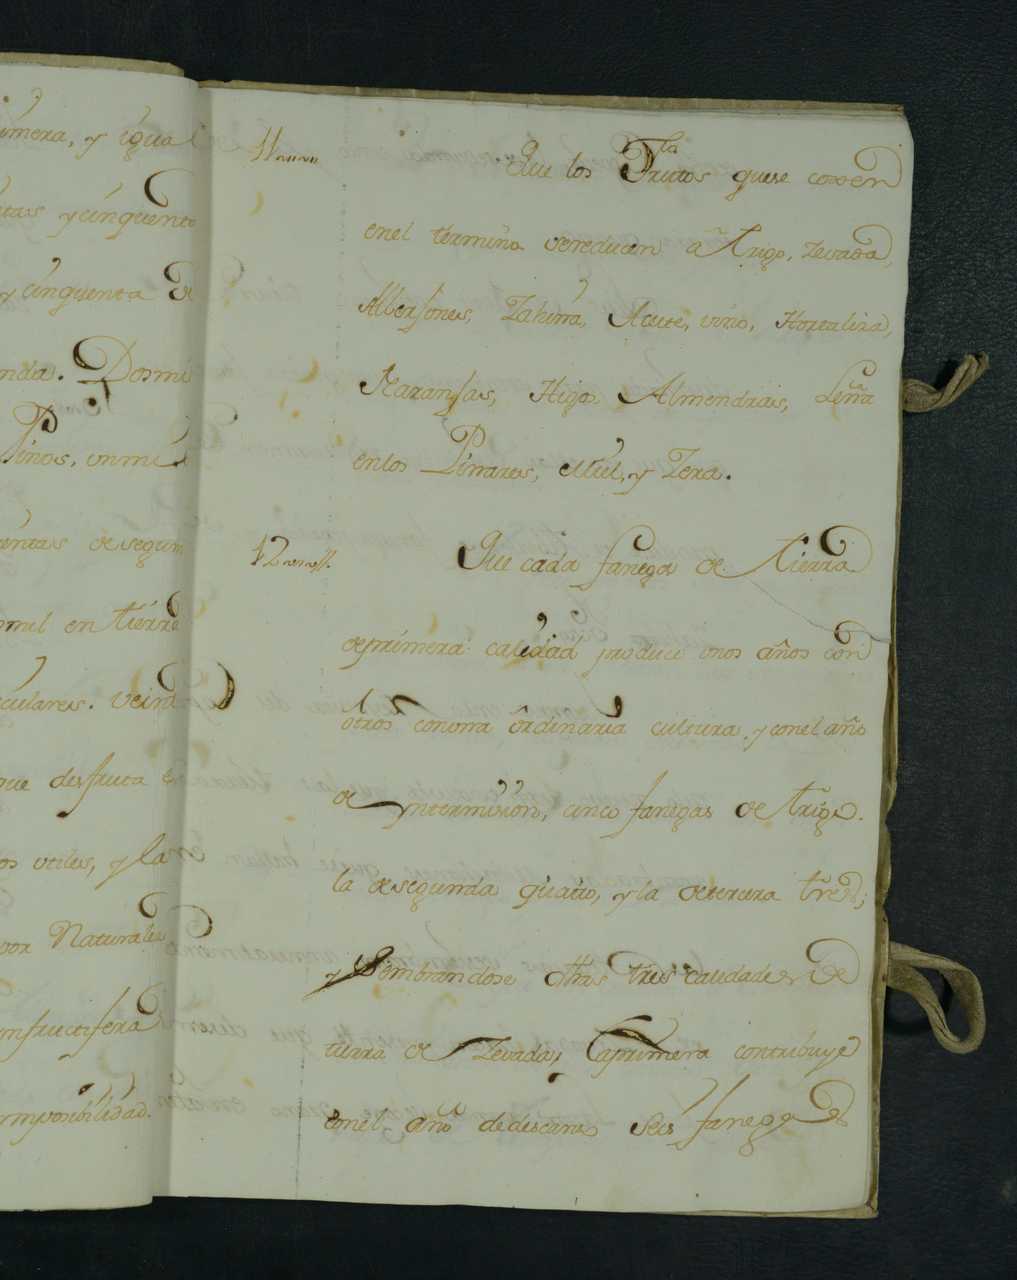 imera, y igual
tas y cinquenta
y cinquenta de
nda. Dosmi
Pinos, unmil
entas de segun
mil en tierra
culares. veint
que desfruta e
os utiles, y la
por Naturalez
infructifera
ymposibilidad.
11
Que los Frutos quese coxen
enel termino sereducen a Trigo, Zevada,
Alberjones, Zahina, Aceite, vino, Hortaliza,
Naranjas, Higos, Almendras, Leña
enlos Pinares, Miel, y Zera.
12
Que cada fanega de tierra
deprimera calidad produce unos años con
otros conorra ôrdinaria cultura, y conel año
de yntermision, cinco fanegas de trigo.
la desegunda quatro, y la detercera tres;
y Sembrandose ôtras tres calidades de
tierra de Zevada, laprimera contribuye
conel año dedescanso Seis fanegas